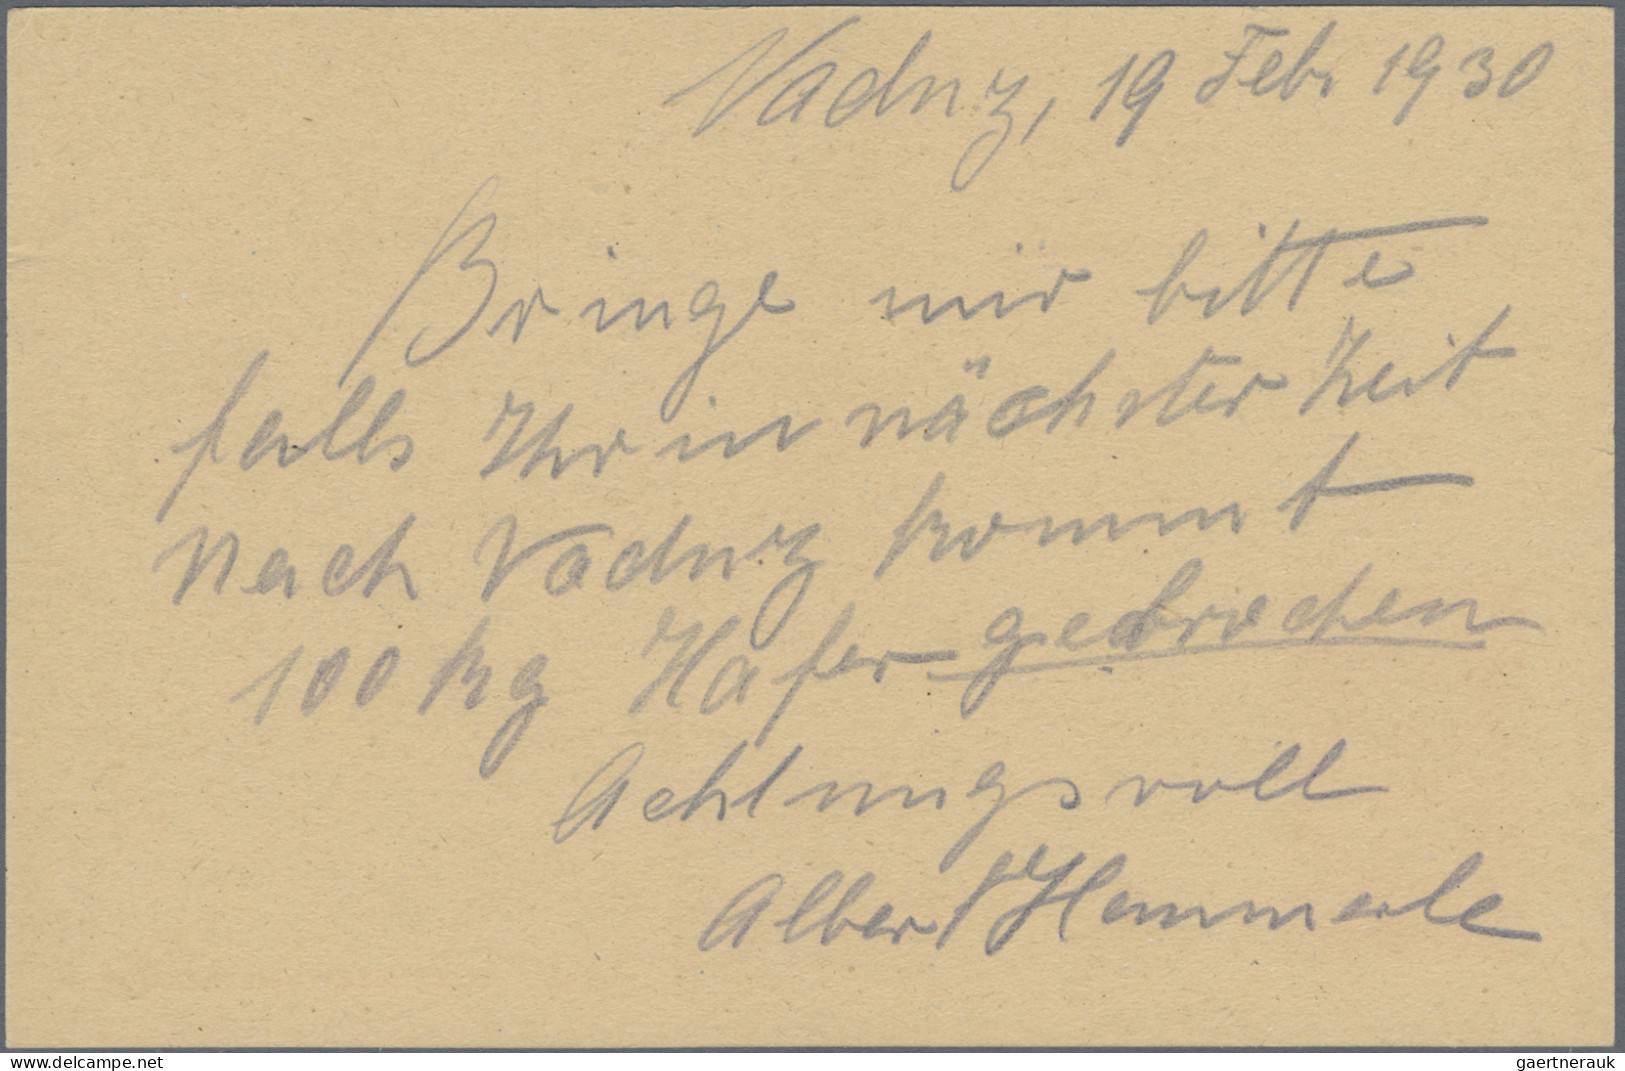 Vaduz, 19 Feb. 1930
Bringe mir bitte
falls Ihr in nächster Zeit
nach Vaduz kommt
100 kg Hafer gebrochen
Achtungsvoll
Albert Hemmerle
www.delcampe.net
gaertnerauk